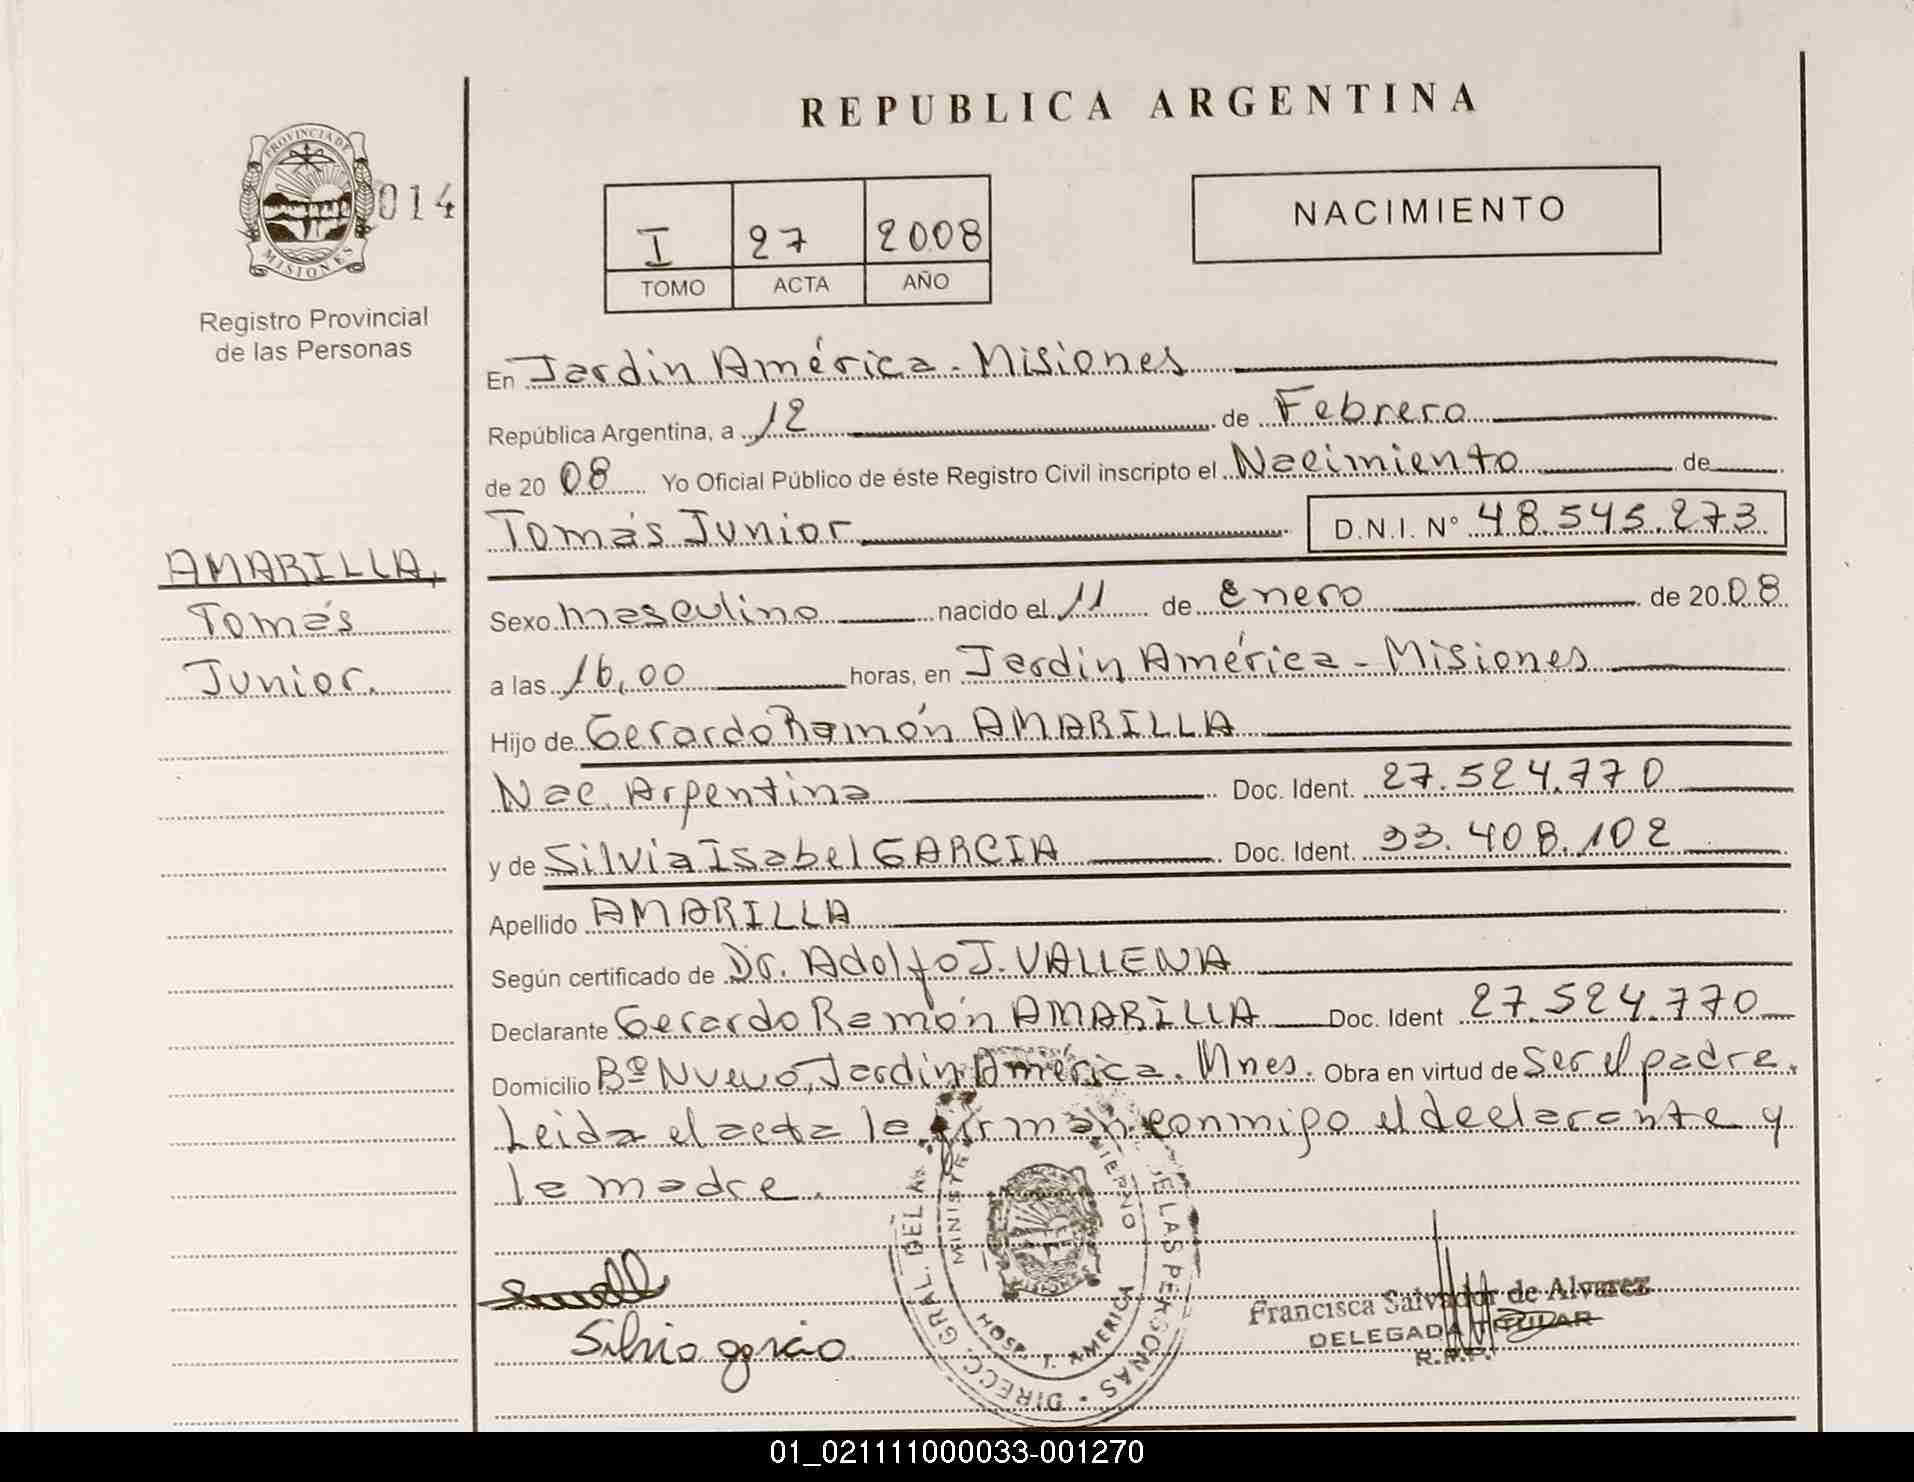 REPUBLICA ARGENTINA
PROVINCIA DE
MISIONES
014
Registro Provincial
de las Personas
I 27 2008
TOMO ACTA AÑO
NACIMIENTO
En Jardin América - Misiones
República Argentina, a 12 de Febrero
de 20 08 Yo Oficial Público de éste Registro Civil inscripto el Nacimiento de
Tomás Junior D.N.I. N° 48.545.273
AMARILLA,
Tomás
Junior.
Sexo masculino nacido el 11 de Enero de 20 08
a las 16,00 horas, en Jardin América - Misiones
Hijo de Gerardo Ramón AMARILLA
Nac. Argentina Doc. Ident. 27.524.770
y de Silvia Isabel GARCIA Doc. Ident. 33.408.102
Apellido AMARILLA
Según certificado de Dr. Adolfo J. VALLENA
Declarante Gerardo Ramón AMARILLA Doc. Ident 27.524.770
Domicilio Bº Nuevo, Jardin América. Mnes. Obra en virtud de Ser el padre.
Leida el acta la firman conmigo el declarante y
la madre.
Silvia garcia
DIRECC. GRAL. DEL DE LAS PERSONAS
HOSP. J. AMERICA
MISIONES
Francisca Salvador de Alvarez
DELEGADA TITULAR
R.P.P.
01_021111000033-001270